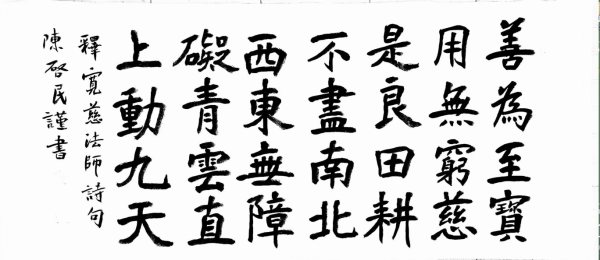 善為至寶
用無窮慈
是良田耕
不盡南北
西東無障
礙青雲直
上動九天
釋寬慈法師詩句
陳啓民謹書